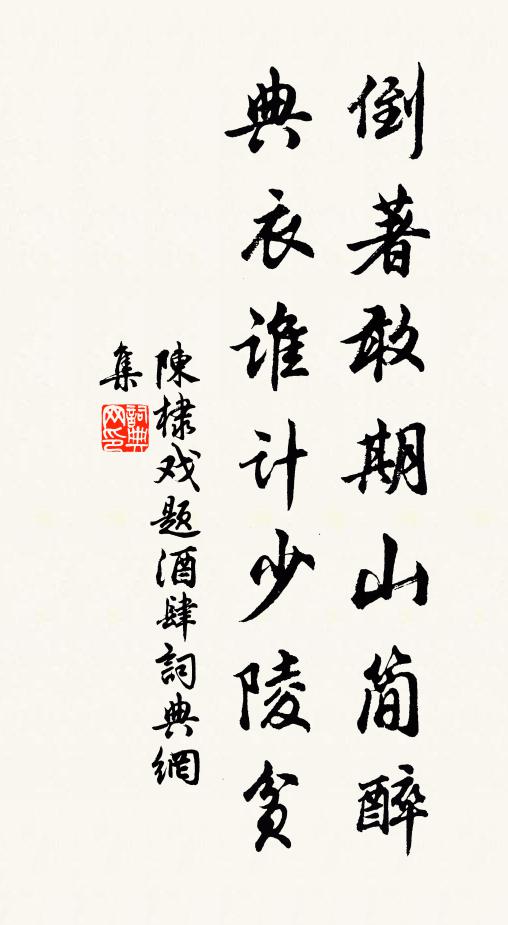 倒著敢期山简醉
典衣谁计少陵貧
陳棣戏题酒肆詞典網
集
詞典网印